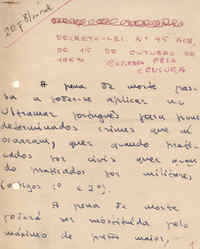 DECRETO-LEI Nº 45
DE 15 DE OUTUBRO DE
196 CORTADO PELA
CENSURA
A pena de morte pas-
sa a poder-se aplicar no
Ultramar português para punir
determinados crimes que di
quer quando prati-
cados por civis quer quan-
do praticados por militares
(artigos 1º e 2º).
A pena de morte
poderá ser substituída pelo
máximo de pena maior,